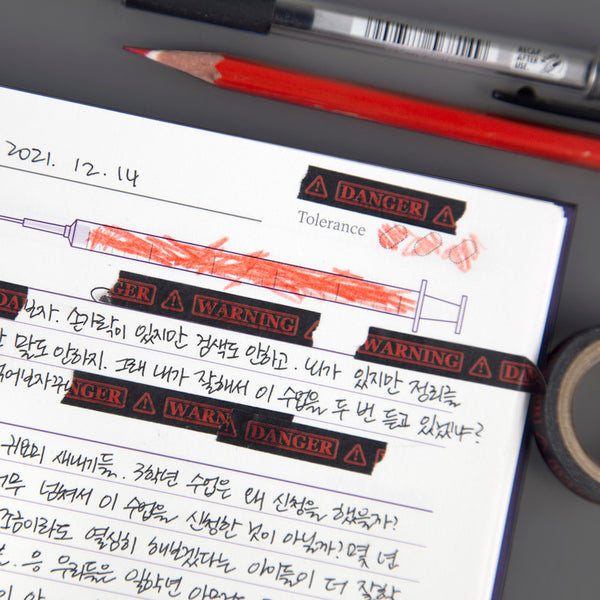 RECAP AFTER USE.
2021. 12. 14
DANGER
Tolerance
GER WARNING
보자. 손가락이 있지만 검색도 안하고. 뇌가 있지만 정리를
WARNING DA
말도 안하지. 그래 내가 잘해서 이 수업을 두 번 듣고 있겠냐?
NGER WARN DANGER
귀요미 새내기들. 3학년 수업은 왜 신청을 했을까?
넘쳐서 이 수업을 신청한 것이 아닐까? 몇 년
조금이라도 열심히 해보겠다는 아이들이 더 잘할
응 우리들은 일학년